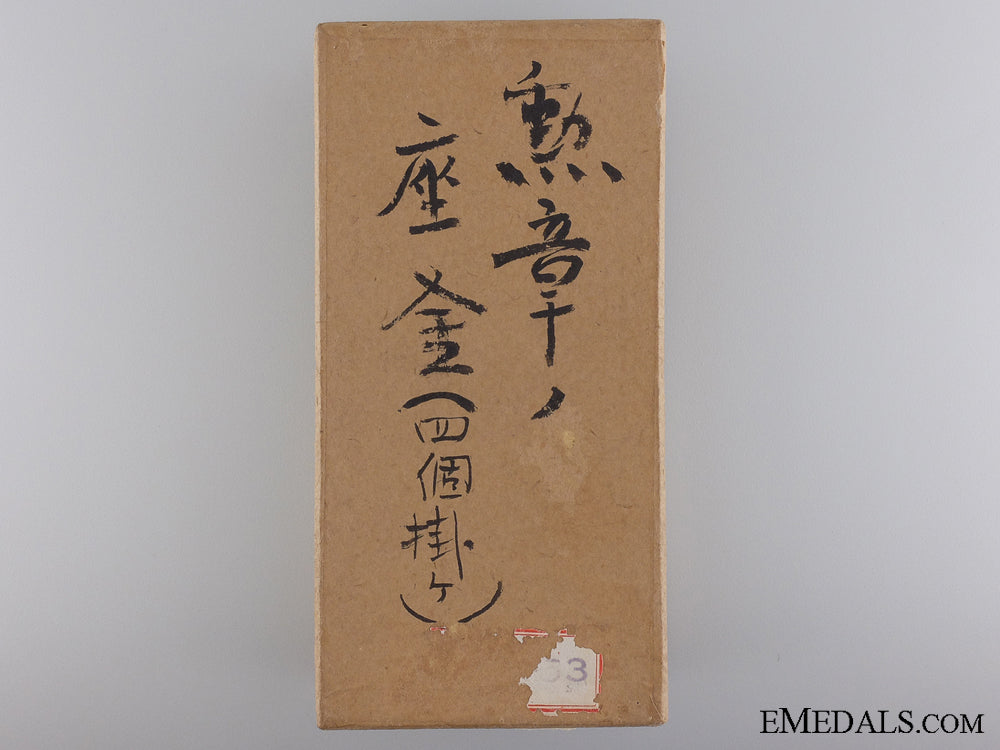 勲章ノ
座金(四個掛ケ)
63
EMEDALS.COM